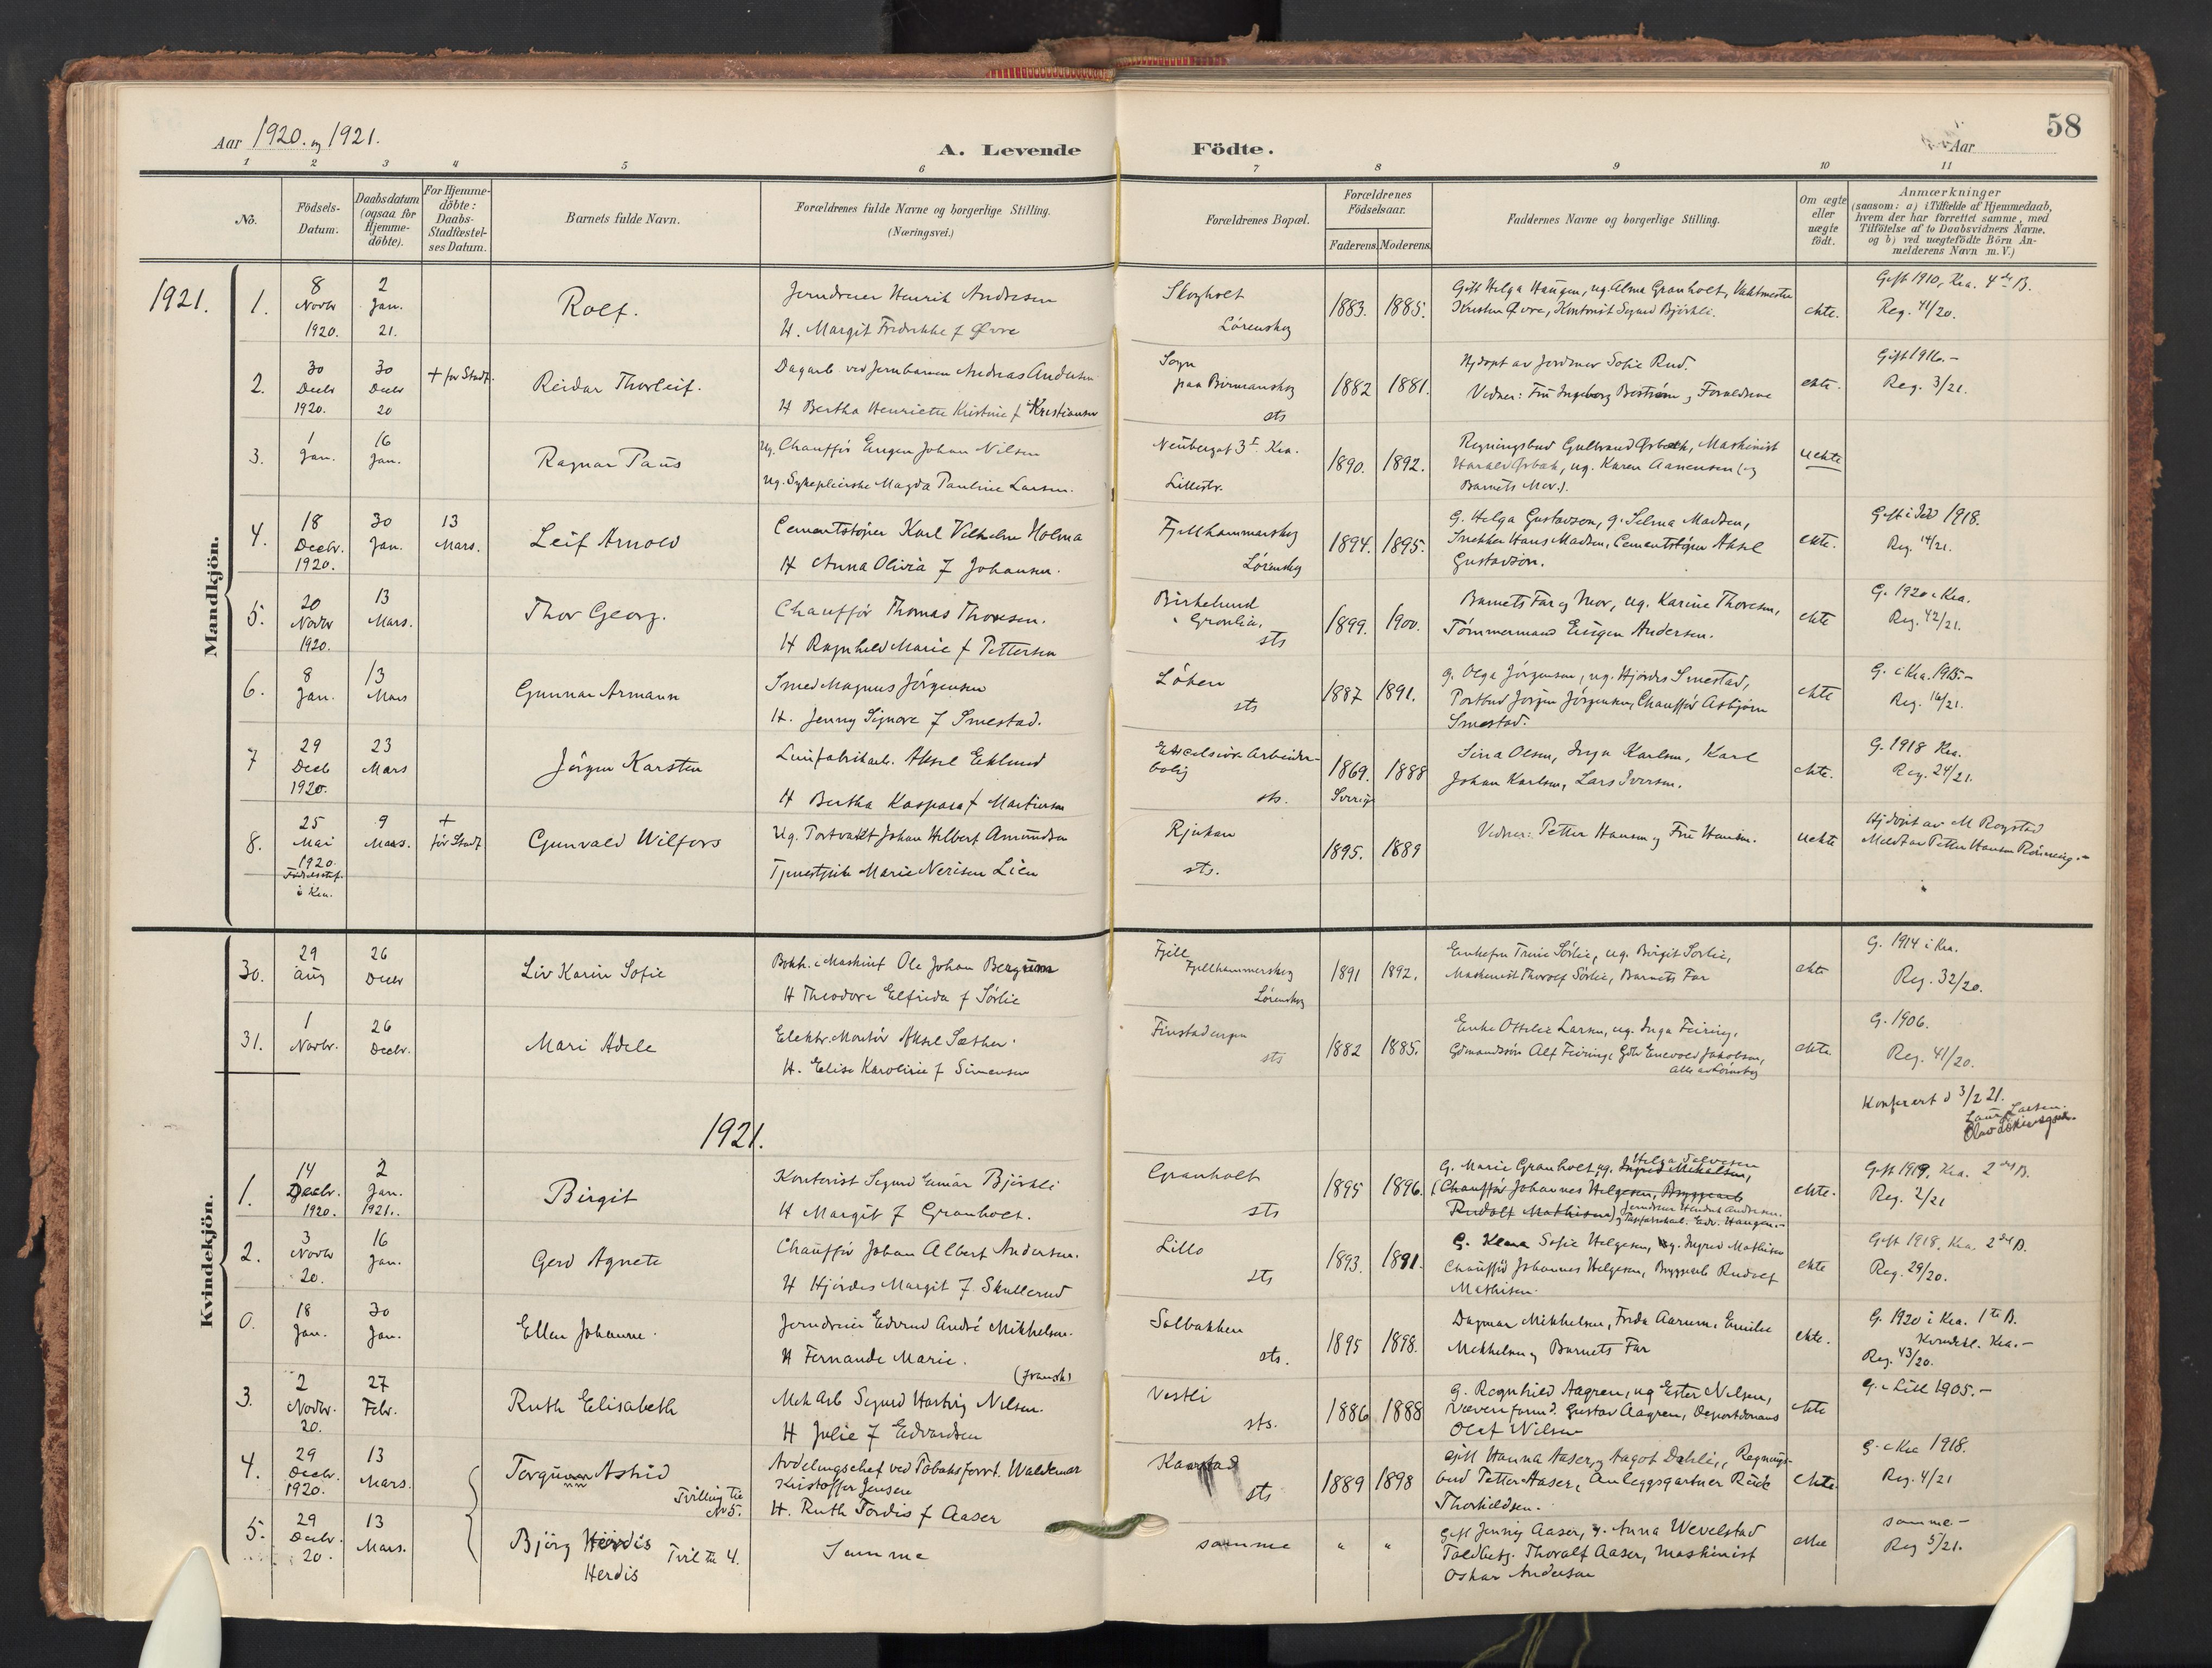 Aar 1920. og 1921.
A. Levende Födte.
58
Aar
1 2 3 4 5 6 7 8 9 10 11
No.
Födsels-
Datum.
Daabsdatum
(ogsaa for
Hjemme-
döbte).
For Hjemme-
döbte:
Daabs-
Stadfæstel-
ses Datum.
Barnets fulde Navn.
Forældrenes fulde Navne og borgerlige Stilling.
(Næringsvei.)
Forældrenes Bopæl.
Forældrenes
Födselsaar.
Faderens. Moderens.
Faddernes Navne og borgerlige Stilling.
Om ægte
eller
uægte
födt.
Anmærkninger
(saasom: a) i Tilfælde af Hjemmedaab,
hvem der har forrettet samme, med
Tilföielse af to Daabsvidners Navne,
og b) ved uægtefödte Börn An-
melderens Navn m. V.)
Mandkjön.
1921.
1.
8
Novbr
1920.
2
Jan.
21.
Rolf.
Jerndreier Henrik Andresen
H. Margit Fredrikke f Øvre
Skogholt
Lörenskog
1883. 1885.
Gift Helga Haugen, ug. Alma Granholt, Vaktmester
Kristen Øvre, Kontorist Sigurd Björkli.
ekte.
Gift 1910, Kra. 4de B.
Reg. 41/20.
2.
30
Decbr
1920.
30
Decbr
20
+ för Stadf.
Reidar Thorleif.
Dagarb. ved Jernbanen Andreas Andersen
H Bertha Henriette Kristine f Kristiansen
Sogn
paa Birmanskog
sts
1882 1881.
Hjdöpt av Jordmor Sofie Rud.
Vidner: Fru Ingeborg Boström og Forældrene
ekte.
Gift 1916.-
Reg. 3/21.
3.
1
Jan.
16
Jan.
Ragnar Paus
Ug. Chaufför Eugen Johan Nilsen
Ug. Sykepleierske Magda Pauline Larsen.
Neubergst 3 I Kra.
Lillestr.
1890. 1892.
Regningsbud Gulbrand Ørbæk, Maskinist
Harald Ørbæk, ug. Karen Aanensen (og
Barnets Mor.).
uekte
4.
18
Decbr.
1920.
30
Jan.
13
Mars.
Leif Arnold
Cementstöper Karl Vilhelm Holma
H Anna Olivia f Johansen.
Fjellhammerskog
Lörenskog
1894. 1895.
G. Helga Gustavson, g. Selma Madsen,
Snekker Hans Madsen, Cementstöper Aksel
Gustavson.
ekte.
Reg. 14/21.
5.
20
Novbr
1920.
13
Mars.
Thor Georg.
Chaufför Thomas Thoresen.
H Ragnhild Marie f Pettersen
Birkelund
i Grönlia,
sts
1899. 1900.
Barnets Far og Mor, ug. Karine Thoresen,
Tömmermand Eugen Andersen.
ekte
G. 1920 i Kra.
Reg. 42/21.
6.
8
Jan.
13
Mars
Gunnar Armann
Smed Magnus Jörgensen
H. Jenny Signora f Smestad.
Löken
sts
1887 1891.
g. Olga Jörgensen, ug. Hjördis Smestad,
Postbud Jörgen Jörgensen, Chaufför Asbjörn
Smestad.
ekte
G. i Kra. 1915.-
Reg. 16/21.
7
29
Decb
1920.
23
Mars
Jörgen Karsten
Limfabrikarb. Aksel Eklund
H Bertha Kaspara f Martinsen
Excelsior Arbeider-
bolig
sts.
1869. 1888
Sverige
Sina Olsen, Inga Karlsen, Karl
Johan Karlsen, Lars Iversen.
ekte.
G. 1918 Kra.
Reg. 24/21.
8.
25
Mai
1920.
i Kra.
9
Mars.
+
för Stadf
Gunvald Wilfors
Ug. Portvakt Johan Hilbert Amundsen
Tjenestpike Marie Nerisen Lien
Rjukan
sts.
1895. 1889
Vidner: Petter Hansen og Fru Hansen.
uekte
Hjdöpt av M Rogstad
Meldt av Petter Hansen Rönning.-
Kvindekjön.
30.
29
Aug
26
Decbr
Liv Karin Sofie
Bokh. i Maskinf Ole Johan Bergum
H Theodora Elfrida f Sörlie
Fjell
Fjellhammerskog
Lörenskog
1891 1892.
Enkefru Trine Sörlie, ug. Birgit Sörlie,
Maskinist Thorolf Sörlie, Barnets Far
ekte
G. 1914 i Kra.
Reg. 32/20.
31.
1
Novbr.
26
Decbr.
Mari Adele
Elektr. Montör Aksel Sæther
H. Elise Karoline f Simensen
Finstadengen
sts
1882 1885.
Enke Ottilie Larsen, ug. Inga Feiring,
Gdmandssön Alf Feiring, Gdbr Enevold Jakobsen,
Alle av Lörenskog
ekte
G. 1906.
Reg. 41/20.
Konferert d 3/2 21.
1921.
1.
14
Decbr.
1920.
2
Jan.
1921.
Birgit
Kontorist Sigurd Einar Björkli
H Margit f Granholt.
Granholt
sts
1895 1896.
Helga Salvesen
G. Marie Granholt, ug. Ingrid Mikalsen,
(Chaufför Johannes Helgesen, Bryggearb
Rudolf Mathisen) Jerndreier Henrik Andresen
ekte.
Gift 1919, Kra. 2det B.
Reg. 2/21
2.
3
Novbr
20.
16
Jan.
Gerd Agnete
Chaufför Johan Albert Andersen.
H Hjördis Margit f Skullerud
Lillo
sts
1893. 1891.
G. Klara Sofie Helgesen, ug. Ingrid Mathisen
Chaufför Johannes Helgesen, Bryggearb Rudolf
Mathisen.
ekte
Gift 1918, Kra. 2det B.
Reg. 29/20.
0.
18
Jan.
30
Jan.
Ellen Johanne.
Jerndreier Edvard André Mikkelsen.
H Fernande Marie.
(fransk)
Solbakken
sts.
1895 1898.
Dagmar Mikkelsen, Frida Aarum, Emilie
Mikkelsen og Barnets Far
ekte.
G. 1920 i Kra. 1ste B.
Kvindekl. Kra.-
Reg. 43/20.
3.
2
Novbr.
20.
27
Febr.
Ruth Elisabeth
Mek Arb Sigurd Hartvig Nilsen.
H Julie f Edvardsen
Vestli
sts.
1886 1888
g. Ragnhild Aagren, ug Ester Nilsen,
Væveriform. Gustav Aagren,
Olaf Nilsen
ekte
G. i Lill 1905.-
4.
29
Decbr.
1920.
13
Mars.
Torgunn Astrid
Tvilling til
No 5.
Avdelingschef ved Tobaksforr. Waldemar
Kristoffer Jensen
H. Ruth Tordis f Aaser
Kaarstad
sts
1889 1898
Gift Hanna Aaser, Aagot Dahli, Regnings-
bud Petter Aaser, Anleggsgartner
Thorkildsen.
Ekte
G. i Kra 1918.
Reg. 4/21
5.
29
Decbr.
20.
13
Mars.
Björg Hördis
Herdis
Tvil til 4.
Samme
samme
" "
Gift Jenny Aaser, g. Anna Wevelstad
Toldbetj. Thoralf Aaser, Maskinist
Oskar Andersen
ekte
samme-
Reg 5/21.